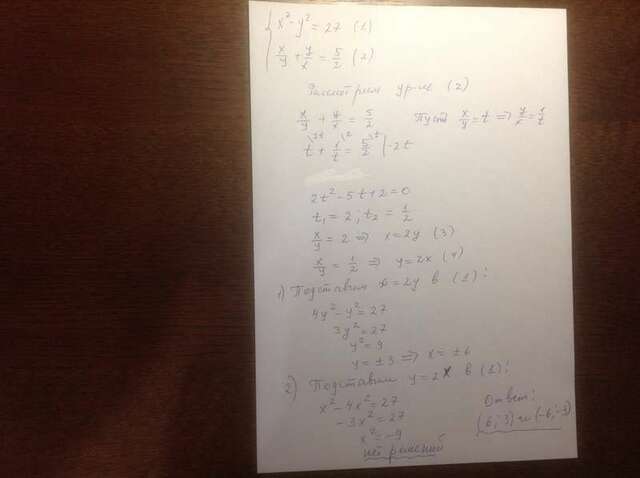 { x² - y² = 27 (1)
x/y + y/x = 5/2 (2)
Рассмотрим ур-ие (2)
x/y + y/x = 5/2 Пусть x/y = t ⇒ y/x = 1/t
t\2t + 1/t\2 = 5/2\t | ·2t
2t² - 5t + 2 = 0
t₁ = 2; t₂ = 1/2
x/y = 2 ⇒ x = 2y (3)
x/y = 1/2 ⇒ y = 2x (4)
1) Подставим x = 2y в (1):
4y² - y² = 27
3y² = 27
y² = 9
y = ±3 ⇒ x = ±6
2) Подставим y = 2x в (1):
x² - 4x² = 27
-3x² = 27
x² = -9
нет решений
Ответ:
(6; 3) и (-6; -3)